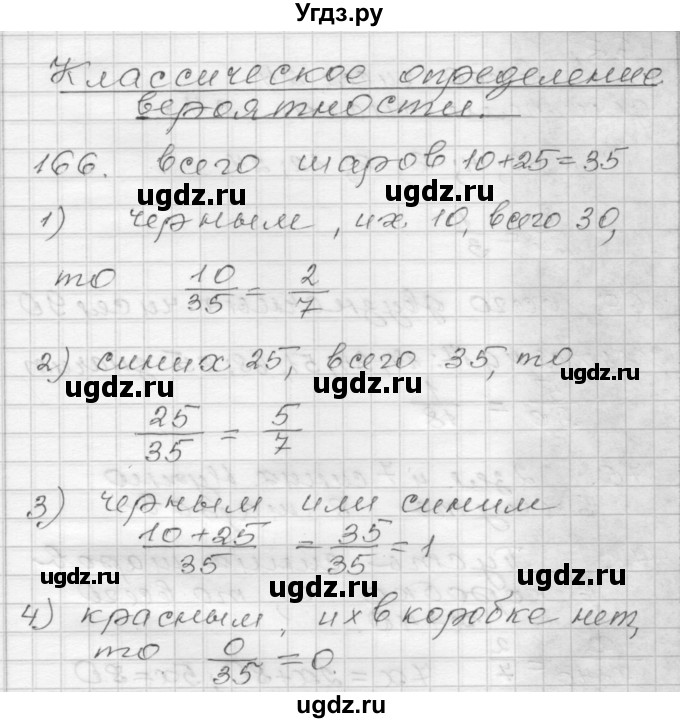 Угдз.ру
Классическое определение
вероятности.
166. всего шаров 10+25=35
1) черным, их 10, всего 30,
то 10/35 = 2/7
2) синих 25, всего 35, то
25/35 = 5/7
3) черным или синим
10+25/35 = 35/35 = 1
4) красным, их в коробке нет,
то 0/35 = 0
ugdz.ru
ugdz.ru
ugdz.ru
ugdz.ru
ugdz.ru
ugdz.ru
ugdz.ru
ugdz.ru
ugdz.ru
ugdz.ru
ugdz.ru
ugdz.ru